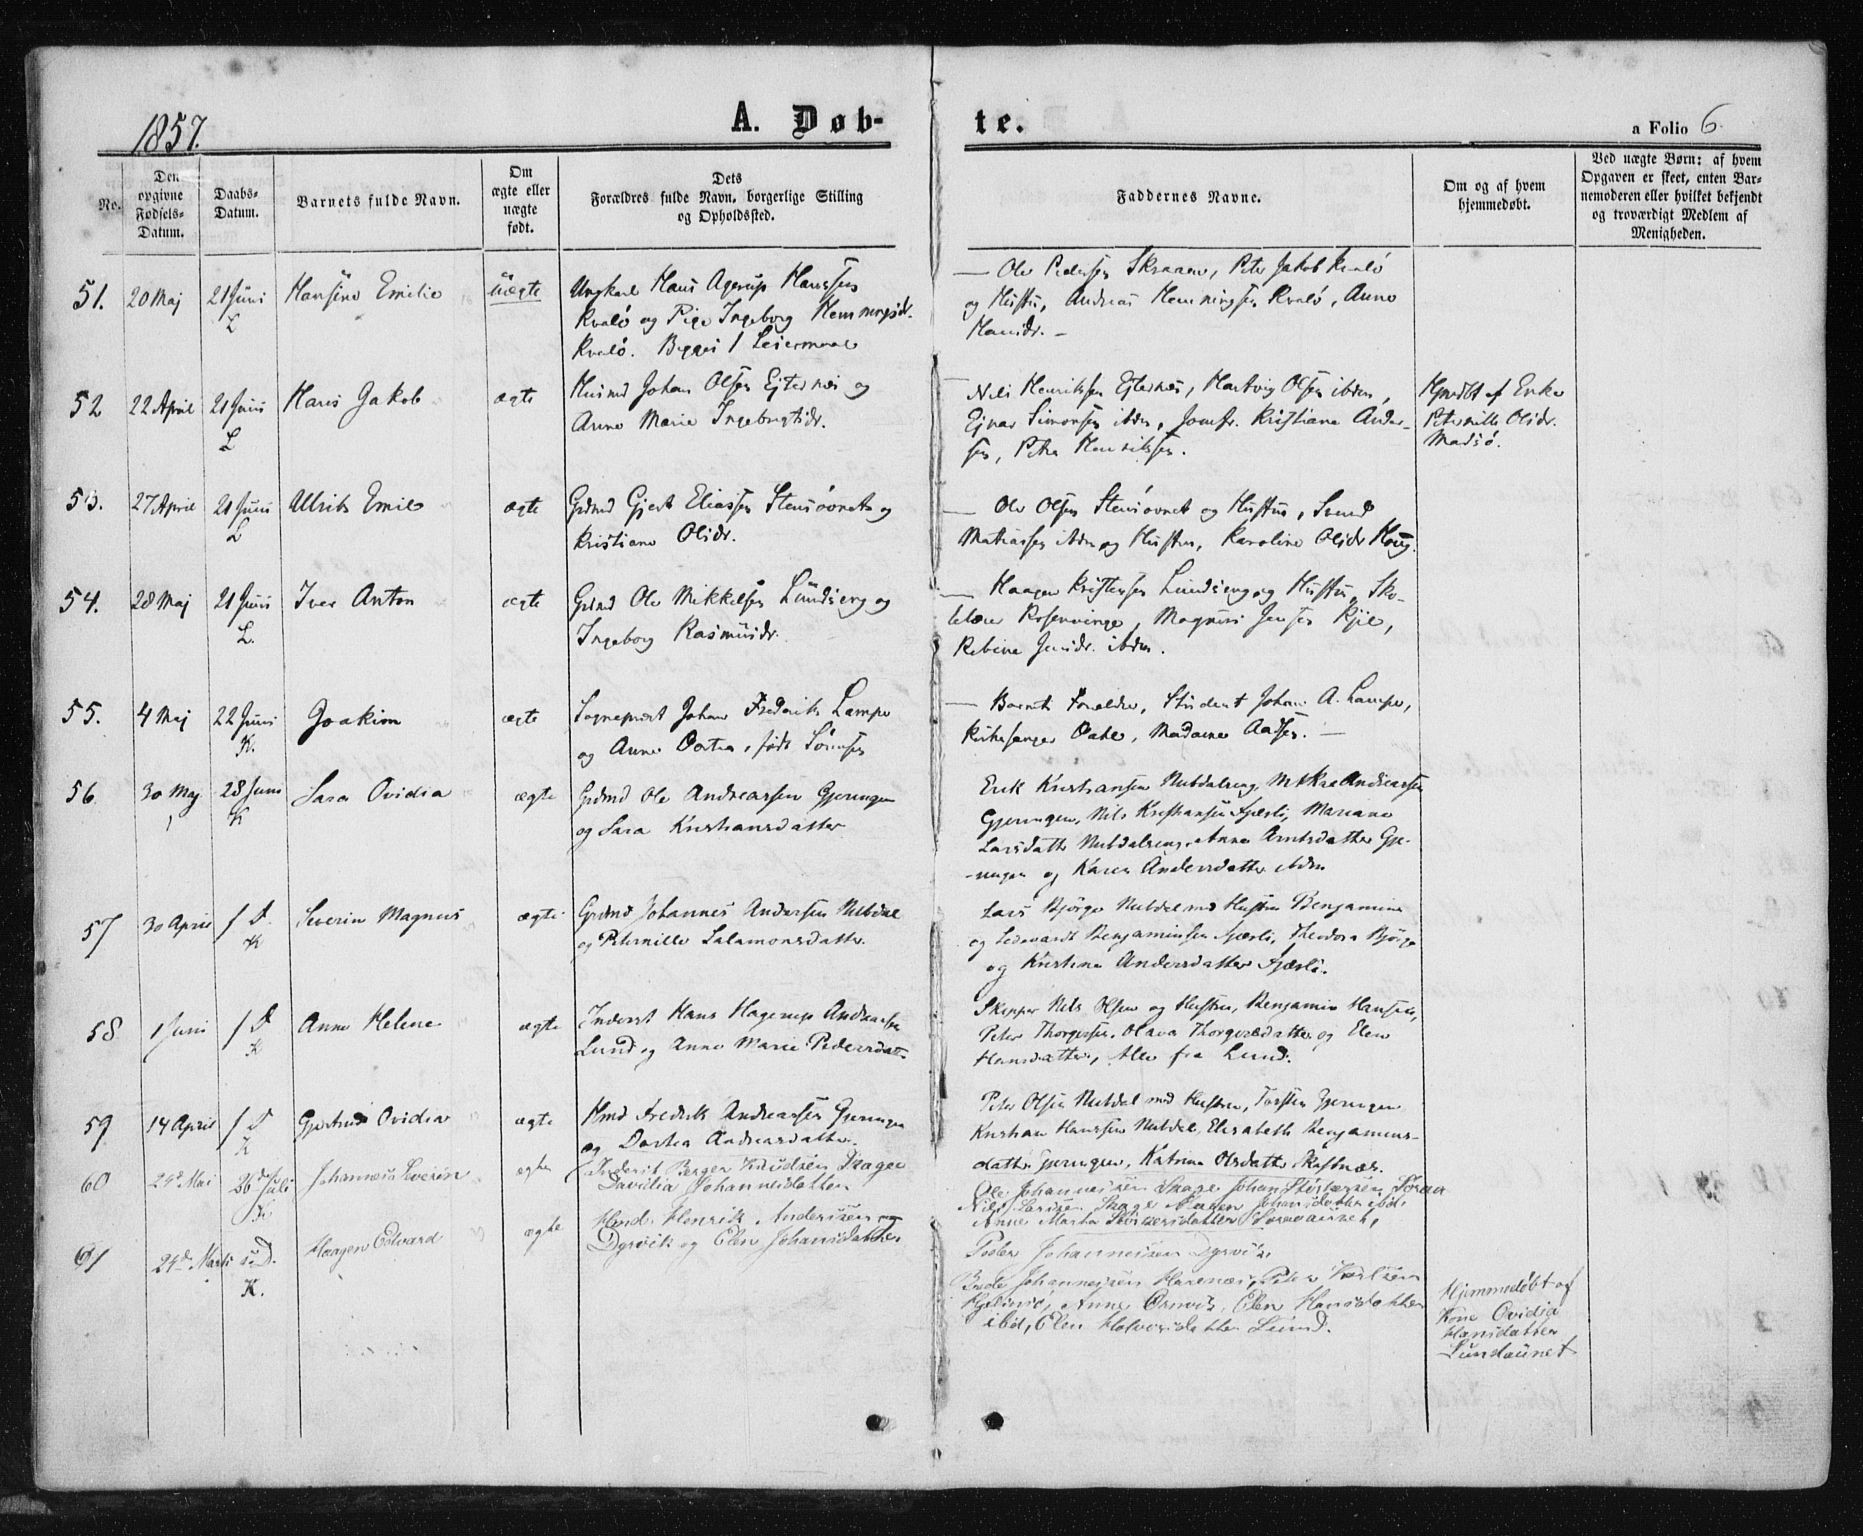 1857.
A. Døb-
te.
a Folio 6
No.
Den opgivne Fødsels-Datum.
Daabs-Datum.
Barnets fulde Navn.
Om ægte eller uægte født.
Dets
Forældres fulde Navn, borgerlige Stilling
og Opholdssted.
Faddernes Navne.
Om og af hvem
hjemmedøbt.
Ved uægte Børn: af hvem
Opgaven er skeet, enten Bar-
nemoderen eller hvilket bekjendt
og troværdigt Medlem af
Menigheden.
51. 20 Maj 21 Juni L Hansine Emilie uægte
Ungkarl Hans Agerup Hanssen
Kvalø og Pige Ingeborg Hemningsdr.
Kvalø. Begges 1 Leiermaal
— Ole Pedersen Skraaen, Peter Jakob Kvalø
og Hustru, Andreas Hemningsen Kvalø, Anne
Hansdr. —
52 22 April 21 Juni L Hans Jakob ægte
Husmd Johan Olsen Ejternæs og
Anne Marie Ingebrigtsdr.
— Nils Henriksen Ejternæs, Hartvig Olsen ibdm,
Ejnar Simonsen ibdm, Jomfr. Kristiane Ander-
sen, Petra Henriksen.
Hjmdbt af Enke
Peternille Olsdr.
Madsø.
53. 27 April 21 Juni L Ulrik Emil ægte
Grdmd Gjert Eliassen Stensovnet og
Kristiane Olsdr.
— Ole Olsen Stensovnet og Hustru, Svend
Matiassen ibdm og Hustru, Karoline Olsdr Haug.
54. 28 Maj 21 Juni L. Iver Anton ægte
Grdmd Ole Mikkelsen Lundseng og
Ingeborg Rasmusdr.
— Haagen Kristensen Lundseng og Hustru, Sko-
lelærer Rosenvinge, Magnus Jensen Kjil,
Rebina Jensdr. ibdm.
55. 4 Maj 22 Juni K. Joakim ægte
Sogneprest Johan Frederik Lampe
og Anne Dortea, født Sørensen
— Barnets Forældre, Student Johan A. Lampe,
Kirkesanger Dahl, Madame Aasen. —
56 30 Maj 28 Juni K Sara Ovidia ægte
Grdmd Ole Andreassen Gjeringen
og Sara Kristiansdatter
Erik Kristiansen Nubdalseng, Mikkel Andreassen
Gjeringen, Nils Kristiansen Fjærli, Mariane
Larsdatter Nubdalseng, Anne Arntsdatter Gje-
-ringen og Karen Andersdatter ibdm
57 30 April s D. K Severin Magnus ægte
Grdmd Johannes Andersen Nubdal
og Peternille Salamonsdatter.
Lars Bjørgo Nubdal med Hustru Benjamine
og Benjaminsen Fjærli, Theodora Bjørgo
og Kristine Andersdatter Fjærli.
58 1 Juni s D K Anne Helene ægte
Inderst Hans Hagerup Andreassen
Lund og Anne Marie Pedersdatt.
Skipper Nils Olsen og Hustru, Benjamin Hansen,
Peter Thorgersen, Olava Thorgersdatter og Elen
Hansdatter, Alle fra Lund.
59 14 April s D K Gjertrud Ovidia ægte
Hmd Fredrik Andreassen Gjeringen
og Dortea Andreasdatter.
Peter Olsen Nubdal med Hustru, Torsten Gjeringen
Kristian Hanssen Nubdal, Elisabeth Benjamins-
datter Gjeringen, Katrine Olsdatter Skisnæs.
60 24de Mai 26de Juli K Johannes Sverin ægte
Inderst Berger Knudsen Skage
Davidia Johannesdatter
Ole Johannessen Skage Johan
Nils Larsen Skage Karen Johansdatter ibid.
Anne Marta
61 24de Marts s. D. K. Haagen Edvard ægte
Hmd. Henrik Andersen
Dyrvik og Elen Johansdatter
Peder Johannessen Dyrvik
Johannessen Horsnæs, Peter
Anne Ørsvik, Elen Hansdatter
ibid, Elen Lund.
Hjemmedøbt af
Kone Ovidia
Hansdatter
Lundaunet